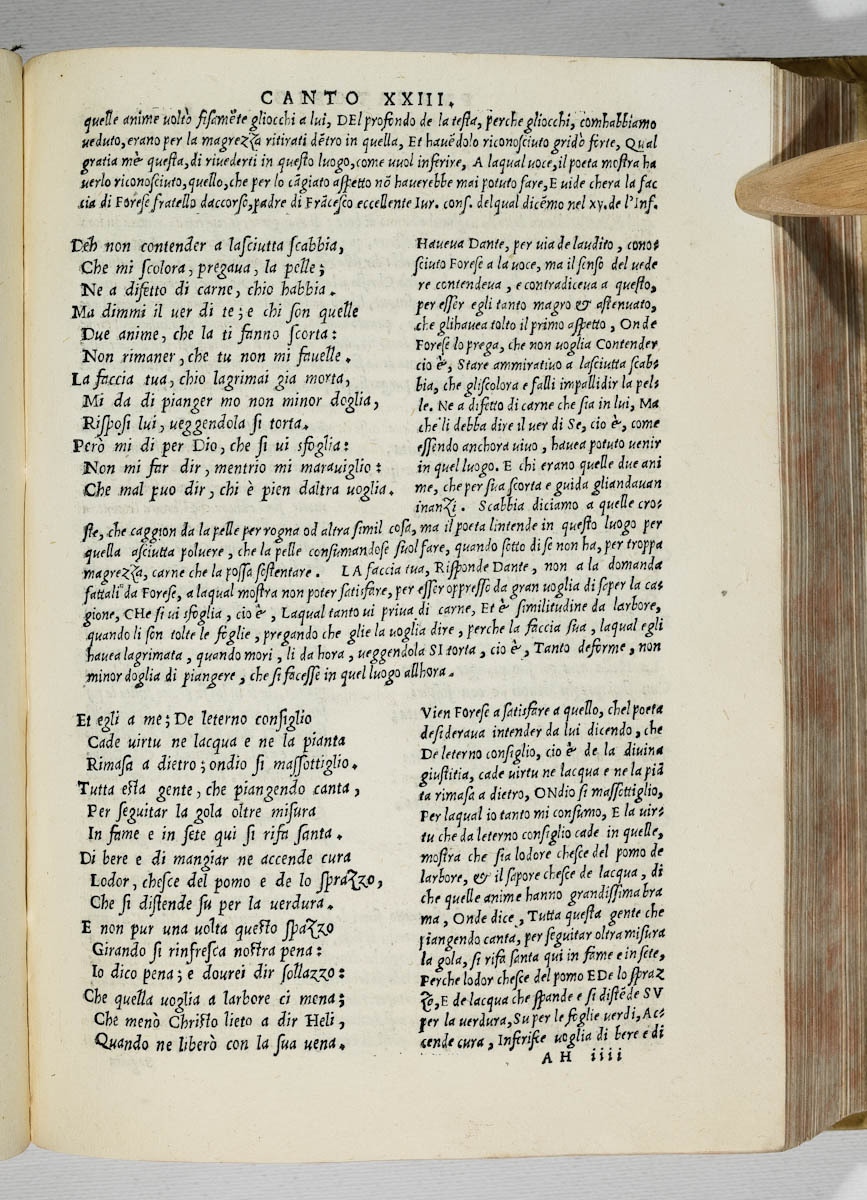 CANTO XXIII.
quelle anime uoltò fisamẽte gliocchi a lui, DEl profondo de la testa, perche gliocchi, comhabbiamo
ueduto, erano per la magrezza ritirati dẽtro in quella, Et hauẽdolo riconosciuto gridò forte, Qual
gratia mè questa, di riuederti in questo luogo, come uuol inferire, A laqual uoce, il poeta mostra ha
uerlo riconosciuto, quello, che per lo cãgiato aspetto nõ hauerebbe mai potuto fare, E uide chera la fac
cia di Forese fratello daccorso, padre di Frãcesco eccellente Iur. cons. delqual dicẽmo nel xy. de l'Inf.
Deh non contender a lasciutta scabbia,
Che mi scolora, pregaua, la pelle;
Ne a difetto di carne, chio habbia.
Ma dimmi il uer di te; e chi son quelle
Due anime, che la ti fanno scorta:
Non rimaner, che tu non mi fauelle.
La faccia tua, chio lagrimai gia morta,
Mi da di pianger mo non minor doglia,
Risposi lui, ueggendola si torta.
Però mi di per Dio, che si ui sfoglia:
Non mi far dir, mentrio mi marauiglio:
Che mal puo dir, chi è pien daltra uoglia.
Haueua Dante, per uia de laudito, cono-
sciuto Forese a la uoce, ma il senso del uede
re contendeua, e contradiceua a questo,
per esser egli tanto magro & astenuato,
che glihauea tolto il primo aspetto, Onde
Forese lo prega, che non uoglia Contender
cio è, Stare ammiratiuo a lasciutta scab-
bia, che gliscolora e falli impallidir la pel-
le. Ne a difetto di carne che sia in lui, Ma
che li debba dire il uer di Se, cio è, come
essendo anchora uiuo, hauea potuto uenir
in quel luogo. E chi erano quelle due ani
me, che per sua scorta e guida gliandauan
inanzi. Scabbia diciamo a quelle cro-
ste, che caggion da la pelle per rogna od altra simil cosa, ma il poeta lintende in questo luogo per
quella asciutta poluere, che la pelle consumandose suol fare, quando sotto di se non ha, per troppa
magrezza, carne che la possa sostentare. LA faccia tua, Risponde Dante, non a la domanda
fattali da Forese, a laqual mostra non poter satisfare, per esser oppresso da gran uoglia di saper la ca-
gione, CHe si ui sfoglia, cio è, Laqual tanto ui priua di carne, Et è similitudine da larbore,
quando li son tolte le foglie, pregando che glie la uoglia dire, perche la faccia sua, laqual egli
hauea lagrimata, quando morì, li da hora, ueggendola SI torta, cio è, Tanto deforme, non
minor doglia di piangere, che si facesse in quel luogo allhora.
Et egli a me; De leterno consiglio
Cade uirtu ne lacqua e ne la pianta
Rimasa a dietro; ondio si massottiglio.
Tutta esta gente, che piangendo canta,
Per seguitar la gola oltre misura
In fame e in sete qui si rifa santa.
Di bere e di mangiar ne accende cura
Lodor, chesce del pomo e de lo sprazzo,
Che si distende su per la uerdura.
E non pur una uolta questo spazzo
Girando si rinfresca nostra pena:
Io dico pena; e dourei dir sollazzo:
Che quella uoglia a larbore ci mena;
Che menò Christo lieto a dir Heli,
Quando ne liberò con la sua uena.
Vien Forese a satisfare a quello, chel poeta
desideraua intender da lui dicendo, che
De leterno consiglio, cio è de la diuina
giustitia, cade uirtu ne lacqua e ne la piã
ta rimasa a dietro, ONdio si massottiglio,
Per laqual io tanto mi consumo, E la uir-
tu che da leterno consiglio cade in quelle,
mostra che sia lodore chesce del pomo de
larbore, & il sapore chesce de lacqua, di
che quelle anime hanno grandissima bra
ma, Onde dice, Tutta questa gente che
piangendo canta, per seguitar oltra misura
la gola, si rifà santa qui in fame e in sete,
Perche lodor chesce del pomo E De lo spraz
zo, E de lacqua che spande e si distẽde SV
per la uerdura, Su per le foglie uerdi, Ac-
cende cura, Inferisce uoglia di bere e di
AH iiii